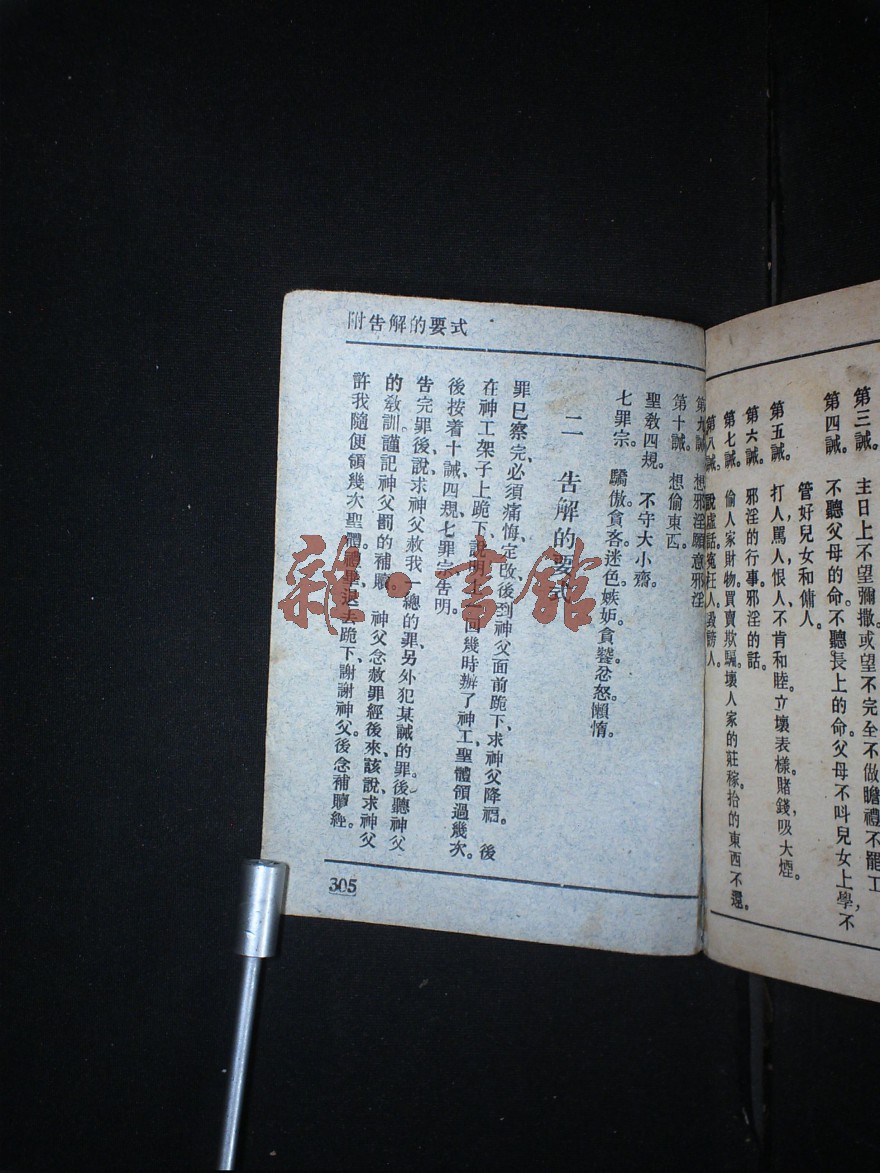 第三誡。 主日上不望彌撒或望不完全不做瞻禮不罷工
第四誡。 不聽父母的命不聽長上的命父母不呌兒女上學，不
管好兒女和傭人。
第五誡。 打人，罵人，恨人、不肯和睦。立壞表樣賭錢，吸大煙。
第六誡。 邪淫的行事邪淫的話。
第七誡。 偷人家財物。買賣欺騙。壞人家的莊稼。拾的東西不還。
第八誡。 說虛話。冤枉人。毀謗人。
附告解的要式
第九誡。 想邪淫願意邪淫
第十誡。 想偷東西。
聖教四規。 不守大小齋。
七罪宗。 驕傲貪吝迷色。嫉妬貪饕。忿怒懶惰。
二 告解的要式
罪已察完、必須痛悔定改後到神父面前跪下、求神父降福。 後
在神工架子上跪下說明上一回幾時辦了神工、聖體領過幾次。
後按着十誡、四規、七罪宗告明。
告完罪後、說求神父赦我一總的罪、另外犯某誡的罪。後聽神父
的教訓。謹記神父罰的補贖。 神父念赦罪經後來、該說、求神父
許我隨便領幾次聖體。禮畢退去跪下、謝謝神父。後念補贖經。
305
雜·書館